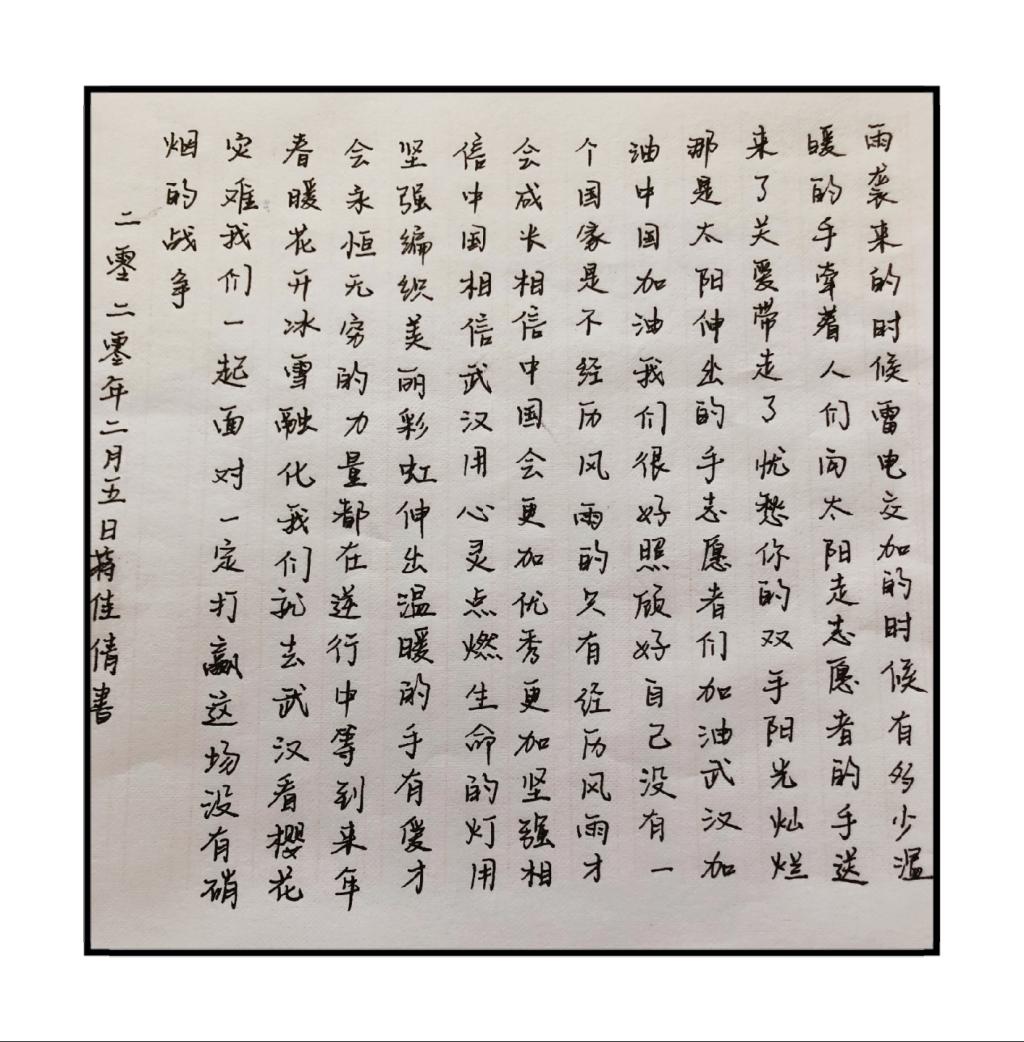 雨袭来的时候雷电交加的时候有多少温
暖的手牵着人们向太阳走志愿者的手送
来了关爱带走了忧愁你的双手阳光灿烂
那是太阳伸出的手志愿者们加油武汉加
油中国加油我们很好照顾好自己没有一
个国家是不经历风雨的只有经历风雨才
会成长相信中国会更加优秀更加坚强相
信中国相信武汉用心灵点燃生命的灯用
坚强编织美丽彩虹伸出温暖的手有爱才
会永恒无穷的力量都在逆行中等到来年
春暖花开冰雪融化我们就去武汉看樱花
灾难我们一起面对一定打赢这场没有硝
烟的战争
二零二零年二月五日蒋佳倩書